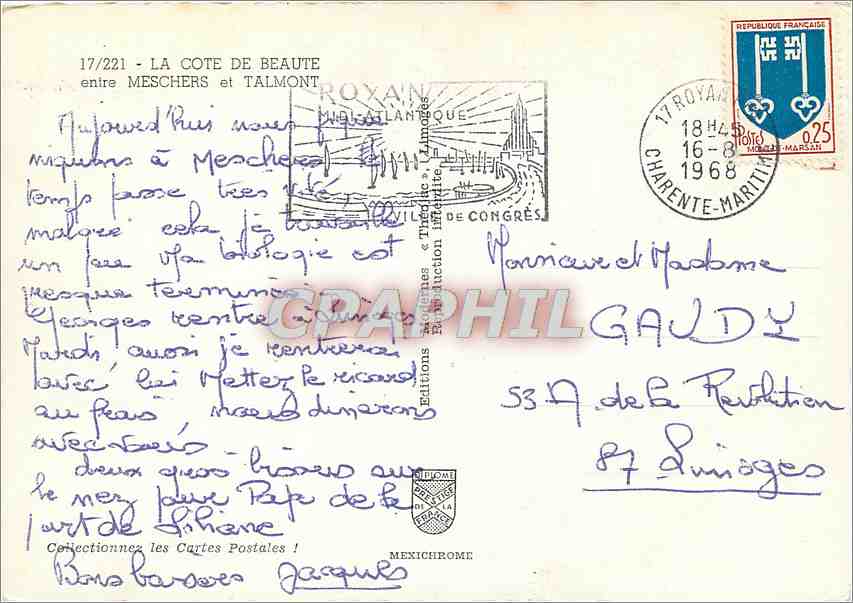 17/221 - LA COTE DE BEAUTE
entre MESCHERS et TALMONT
ROYAN
MIDI-ATLANTIQUE
VILLE DE CONGRÈS
REPUBLIQUE FRANÇAISE
POSTES 0,25
MONT-DE-MARSAN
17 ROYAN
18H45
16-8
1968
CHARENTE-MARITIME
Aujourd'hui nous pique
niquons à Meschers le
temps passe très vite,
malgré cela je travaille
un peu Ma biologie est
presque terminée.
Georges rentre à Limoges
Mardi aussi je rentrerai
avec lui Mettez le ricard
au frais nous dinerons
avec vous
deux gros bisous sur
le nez pour Pap de la
part de Liliane
Bons baisers Jacques
Editions Modernes « Théojac », Limoges
Reproduction interdite
Monsieur et Madame
GAUDY
53 A. de la Révolution
87 Limoges
DIPLOME
PRESTIGE
DE LA
FRANCE
Collectionnez les Cartes Postales !
MEXICHROME
CPAPHIL.COM